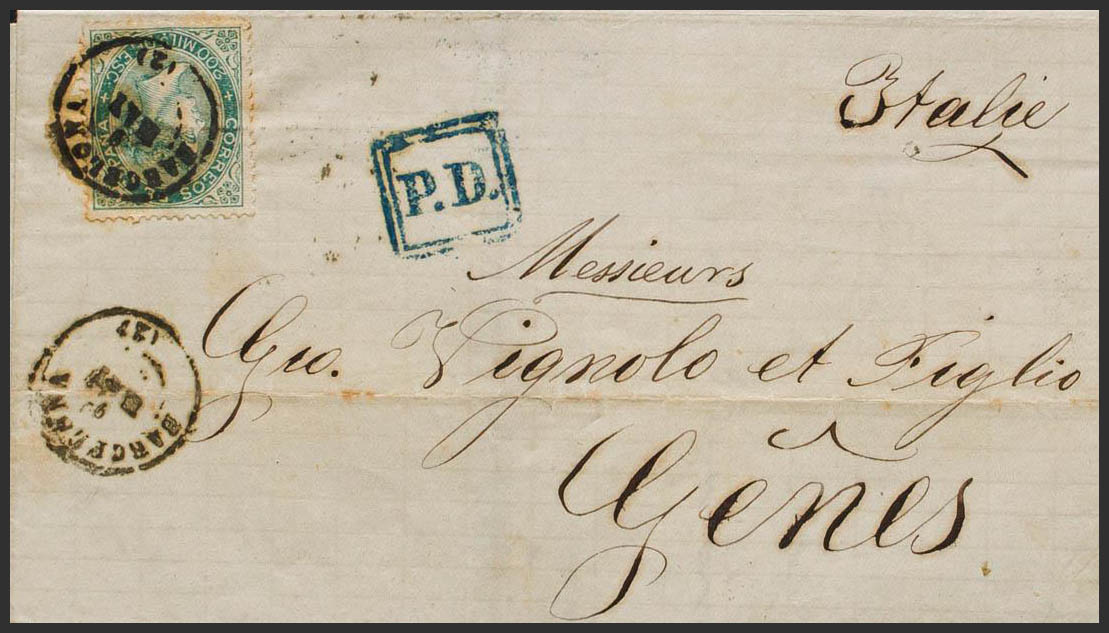 Italie
CORREOS
ESPAÑA
200 MIL. ESC.
BARCELONA
(2)
P.D.
Messieurs
Gio. Vignolo et Figlio
Gênes
BARCELONA
(2)